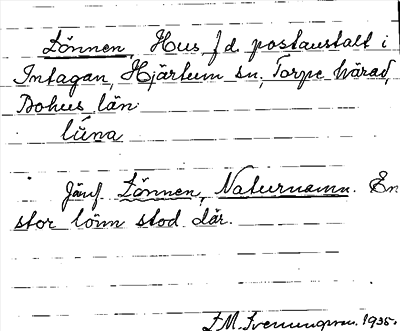 Lönnen, Hus, f.d. postanstalt i
Intagan, Hjärtum sn, Torpe härad,
Bohus län.
lúna
Jämf. Lönnen, Naturnamn. En
stor lönn stod där.
1935.